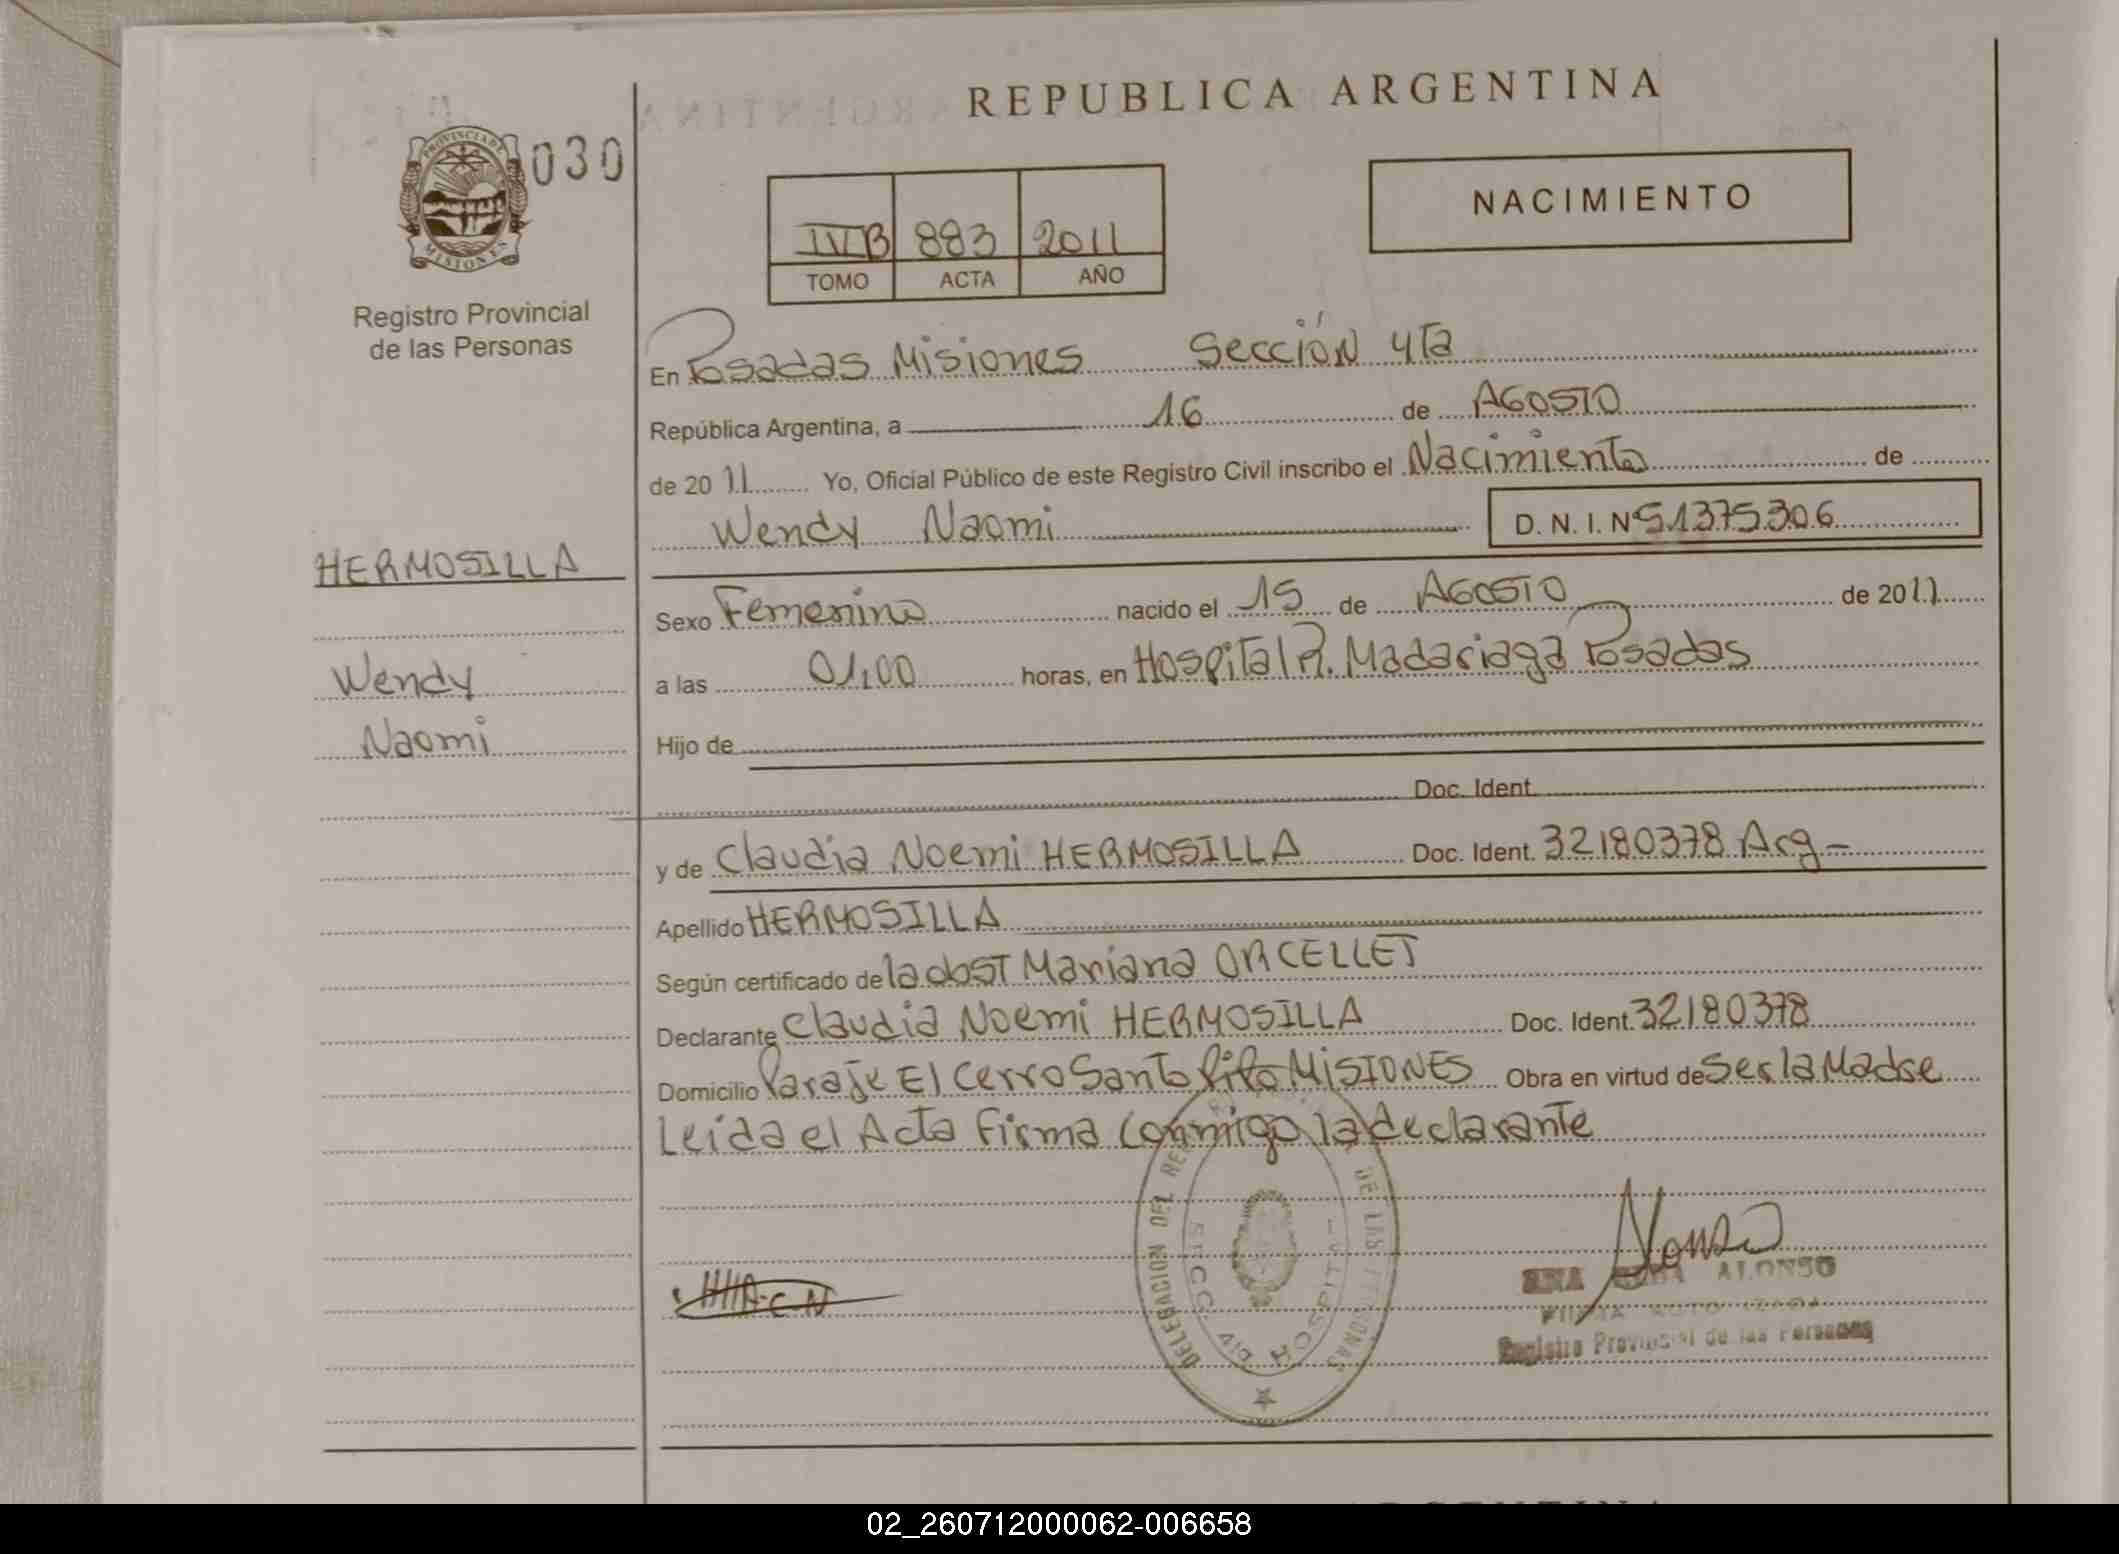 REPUBLICA ARGENTINA
PROVINCIA DE MISIONES
030
NACIMIENTO
IVB 883 2011
TOMO ACTA AÑO
Registro Provincial
de las Personas
En Posadas Misiones Sección 4ta
República Argentina, a 16 de AGOSTO
de 2011 Yo, Oficial Público de este Registro Civil inscribo el Nacimiento de
Wendy Naomi D. N. I. Nº 51375306
HERMOSILLA
Wendy
Naomi
Sexo Femenino nacido el 15 de AGOSTO de 2011
a las 01,00 horas, en Hospital R. Madariaga Posadas
Hijo de
Doc. Ident.
y de Claudia Noemi HERMOSILLA Doc. Ident. 32180378 Arg-
Apellido HERMOSILLA
Según certificado de la obst Mariana ORCELLET
Declarante Claudia Noemi HERMOSILLA Doc. Ident. 32180378
Domicilio Paraje El Cerro Santo Pipo MISIONES Obra en virtud de Ser la Madre
Leida el Acta firma conmigo la declarante
DELEGACION DEL DE LAS PERSONAS
SECC. HOSPITAL
H.C.N
Alonso
ALONSO
Registro Provincial de las Personas
02_260712000062-006658